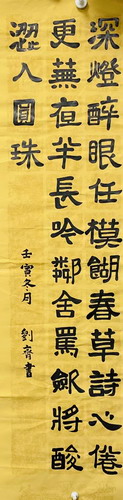 深燈醉眼任模餬春草詩心倦
更蕪夜半長吟鄰舍罵歙將酸
澀入圓珠
壬寅冬月 劉齊書